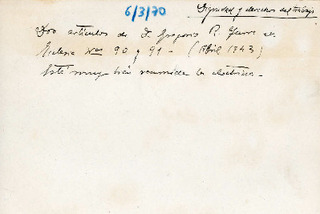 6/3/70
Dignidad y derechos del trabajo
Dos artículos de D. Gregorio R. de
Nos 90 y 91 - (Abril 1943)
Está muy bien resumida la doctrina.